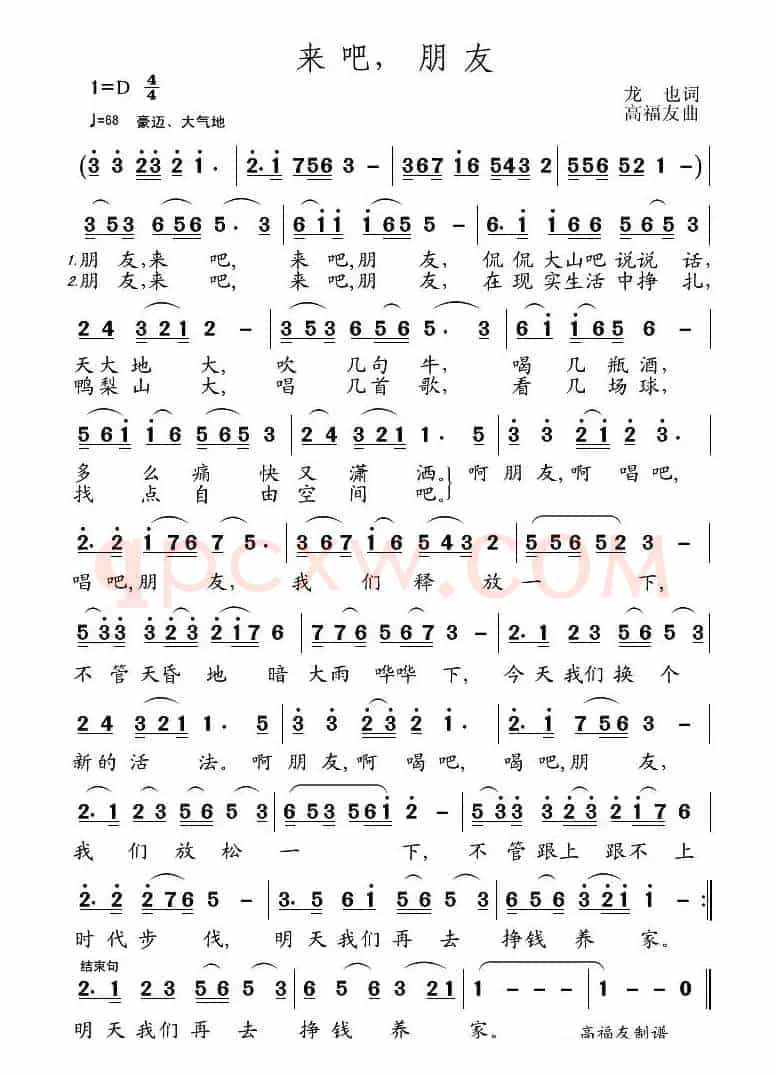 来吧，朋友
1=D 4/4
龙 也词
♩=68 豪迈、大气地
高福友曲
(3 3 23 2 1· | 2·1 7656 3 - | 367 16 5432 | 5556 52 1 -)
353 656 5· 3 | 611 165 5 - | 6·1 166 565 3
1.朋友,来吧, 来吧,朋友, 侃侃大山吧说说话,
2.朋友,来吧, 来吧,朋友, 在现实生活中挣扎,
24 321 2 - | 353 656 5· 3 | 61 165 6 -
天大地大, 吹几句牛, 喝几瓶酒,
鸭梨山大, 唱几首歌, 看几场球,
561 16 565 3 | 24 321 1· 5 | 3 3 21 23·
多么痛快又潇洒。啊朋友,啊唱吧,
找点自由空间吧。
2·2 176 7 5· | 367 16 543 2 | 556 52 3 -
唱吧,朋友, 我们释放一下,
533 323 217 6 | 776 567 3 - | 2·1 23 565 3
不管天昏地暗大雨哗哗下, 今天我们换个
24 321 1· 5 | 3 3 23 2 1· | 2·1 756 3 -
新的活法。啊朋友,啊喝吧, 喝吧,朋友,
2·1 23 565 3 | 653 561 2 - | 533 323 217 6
我们放松一下, 不管跟上跟不上
2·2 276 5 - | 3·5 61 565 3 | 656 321 1 - :‖
时代步伐, 明天我们再去挣钱养家。
结束句
2·1 23 565 3 | 535 63 21 | 1 - - - | 1 - - 0
明天我们再去挣钱养家。 高福友制谱
qpcxw.COM